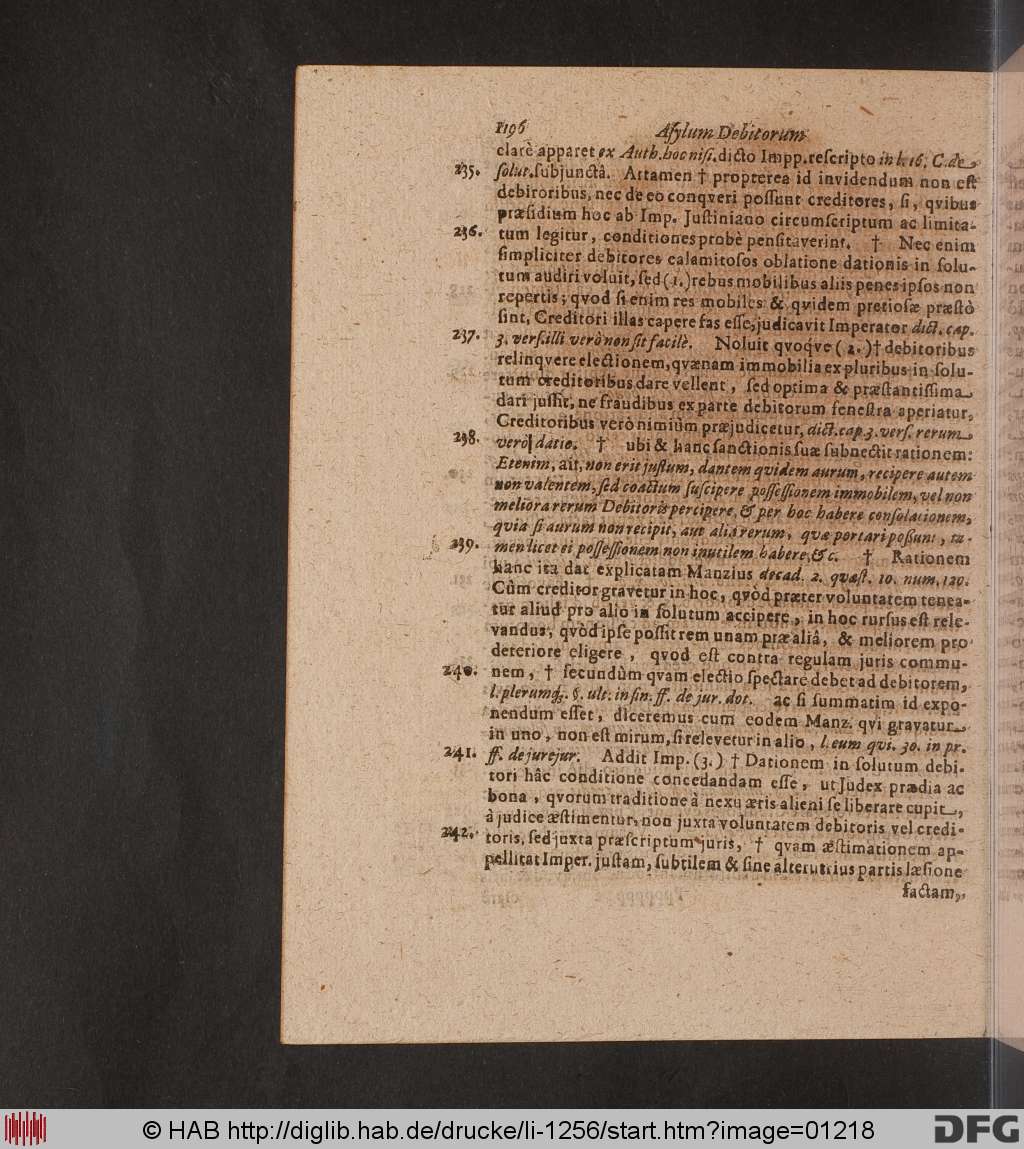 1196 Aſylum Debitorum
clarè apparet ex Auth. hoc niſi. dicto Impp. reſcripto in l. 16. C. de
235. ſolut. ſubjunctâ. Attamen † propterea id invidendum non eſt
debitoribus, nec de eo conqveri poſſunt creditores, ſi, qvibus
præſidium hoc ab Imp. Juſtiniano circumſcriptum ac limita-
236. tum legitur, conditiones probè penſitaverint. † Nec enim
ſimpliciter debitores calamitoſos oblatione dationis in ſolu-
tum audiri voluit, ſed (1.) rebus mobilibus aliis penes ipſos non
repertis; qvod ſi enim res mobiles & qvidem pretioſæ præſtò
ſint, Creditori illas capere fas eſſe, judicavit Imperator dict. cap.
237. 3. verſ. illi verò non ſit facilè. Noluit qvoqve (2.) † debitoribus
relinqvere electionem, qvænam immobilia ex pluribus in ſolu-
tum creditoribus dare vellent, ſed optima & præſtantiſſima
dari juſſit, ne fraudibus ex parte debitorum feneſtra aperiatur,
Creditoribus verò nimiùm præjudicetur, dict. cap. 3. verſ. rerum
238. verò datio. † ubi & hanc ſanctionis ſuæ ſubnectit rationem:
Etenim, ait, non erit juſtum, dantem qvidem aurum, recipere autem
non valentem, ſed coactum ſuſcipere poſſeſſionem immobilem, vel non
meliora rerum Debitoris percipere, & per hoc habere conſolationem,
qvia ſi aurum non recipit, aut alia rerum, qvæ portari poßunt, ta-
239. men licet ei poſſeſſionem non inutilem habere, &c. † Rationem
hanc ita dat explicatam Manzius decad. 2. qvæſt. 10. num. 120.
Cûm creditor gravetur in hoc, qvòd præter voluntatem tenea-
tur aliud pro alio in ſolutum accipere, in hoc rurſus eſt rele-
vandus, qvòd ipſe poſſit rem unam præ aliâ, & meliorem pro
deteriore eligere, qvod eſt contra regulam juris commu-
240. nem, † ſecundùm qvam electio ſpectare debet ad debitorem,
l. plerumq;. §. ult. in fin. ff. de jur. dot. ac ſi ſummatim id expo-
nendum eſſet, diceremus cum eodem Manz. qvi gravatur
in uno, non eſt mirum, ſi relevetur in alio, l. eum qvi. 30. in pr.
241. ff. de jurejur. Addit Imp. (3.) † Dationem in ſolutum debi-
tori hâc conditione concedandam eſſe, ut Judex prædia ac
bona, qvorum traditione à nexu æris alieni ſe liberare cupit,
à judice æſtimentur, non juxta voluntatem debitoris vel credi-
242. toris, ſed juxta præſcriptum juris, † qvam æſtimationem ap-
pellitat Imper. juſtam, ſubtilem & ſine alterutrius partis læſione
factam,
© HAB http://diglib.hab.de/drucke/li-1256/start.htm?image=01218
DFG